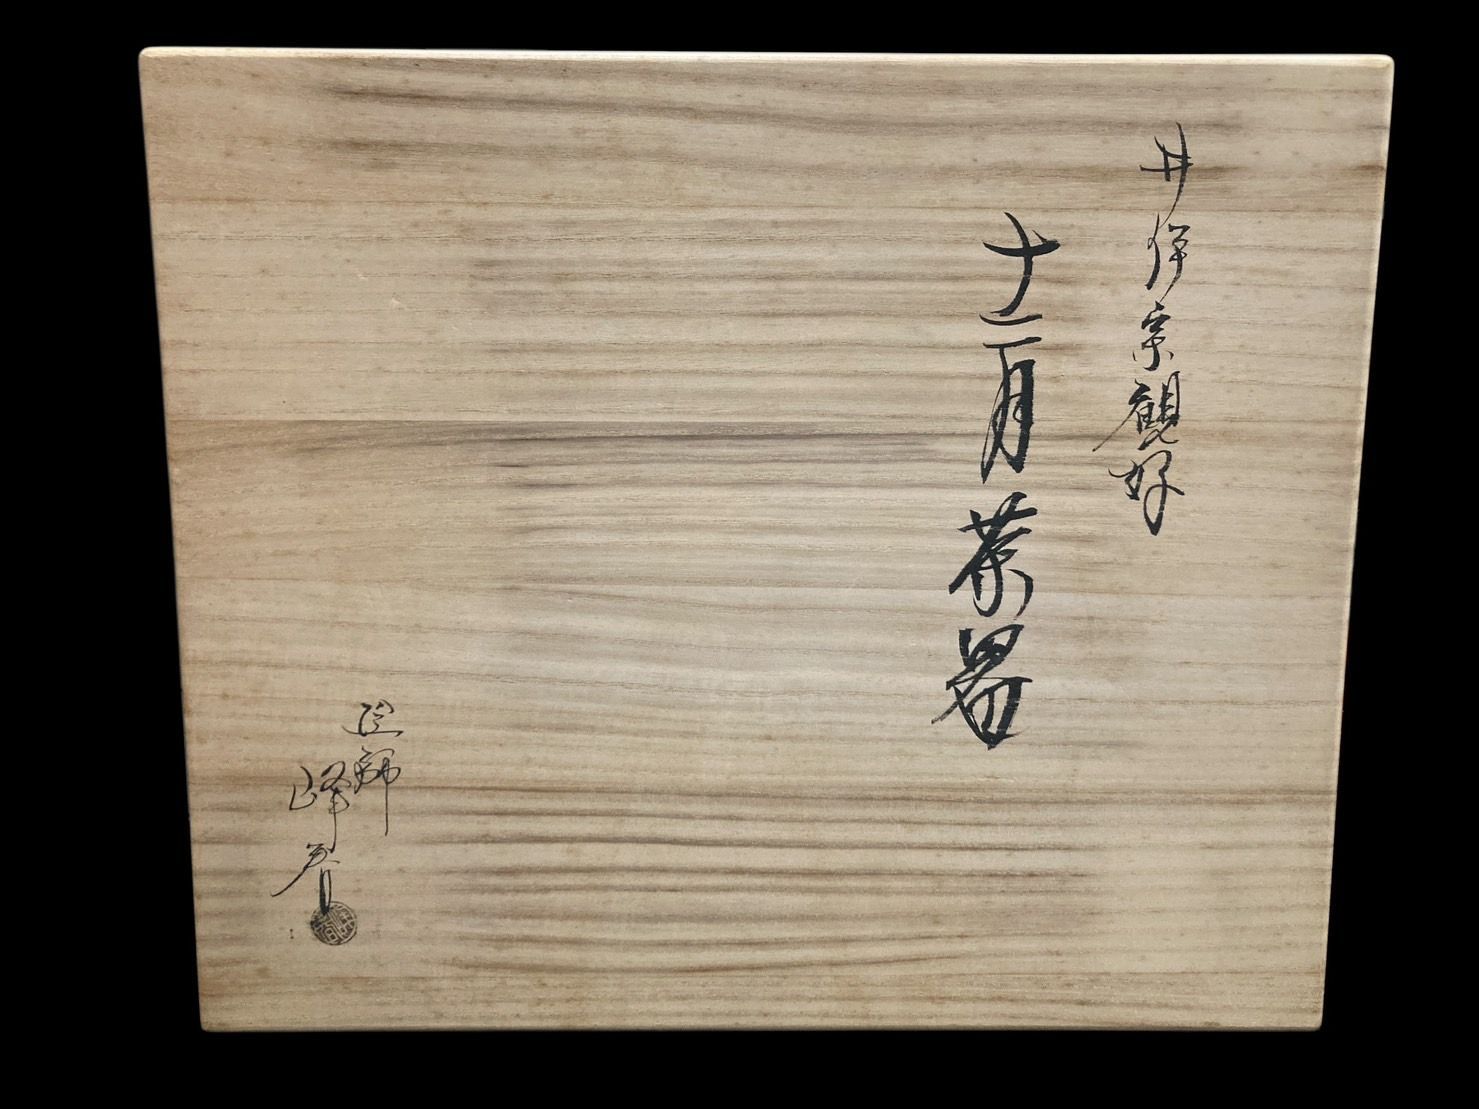 井伊宗観好
十二月茶器
塗師
峰春